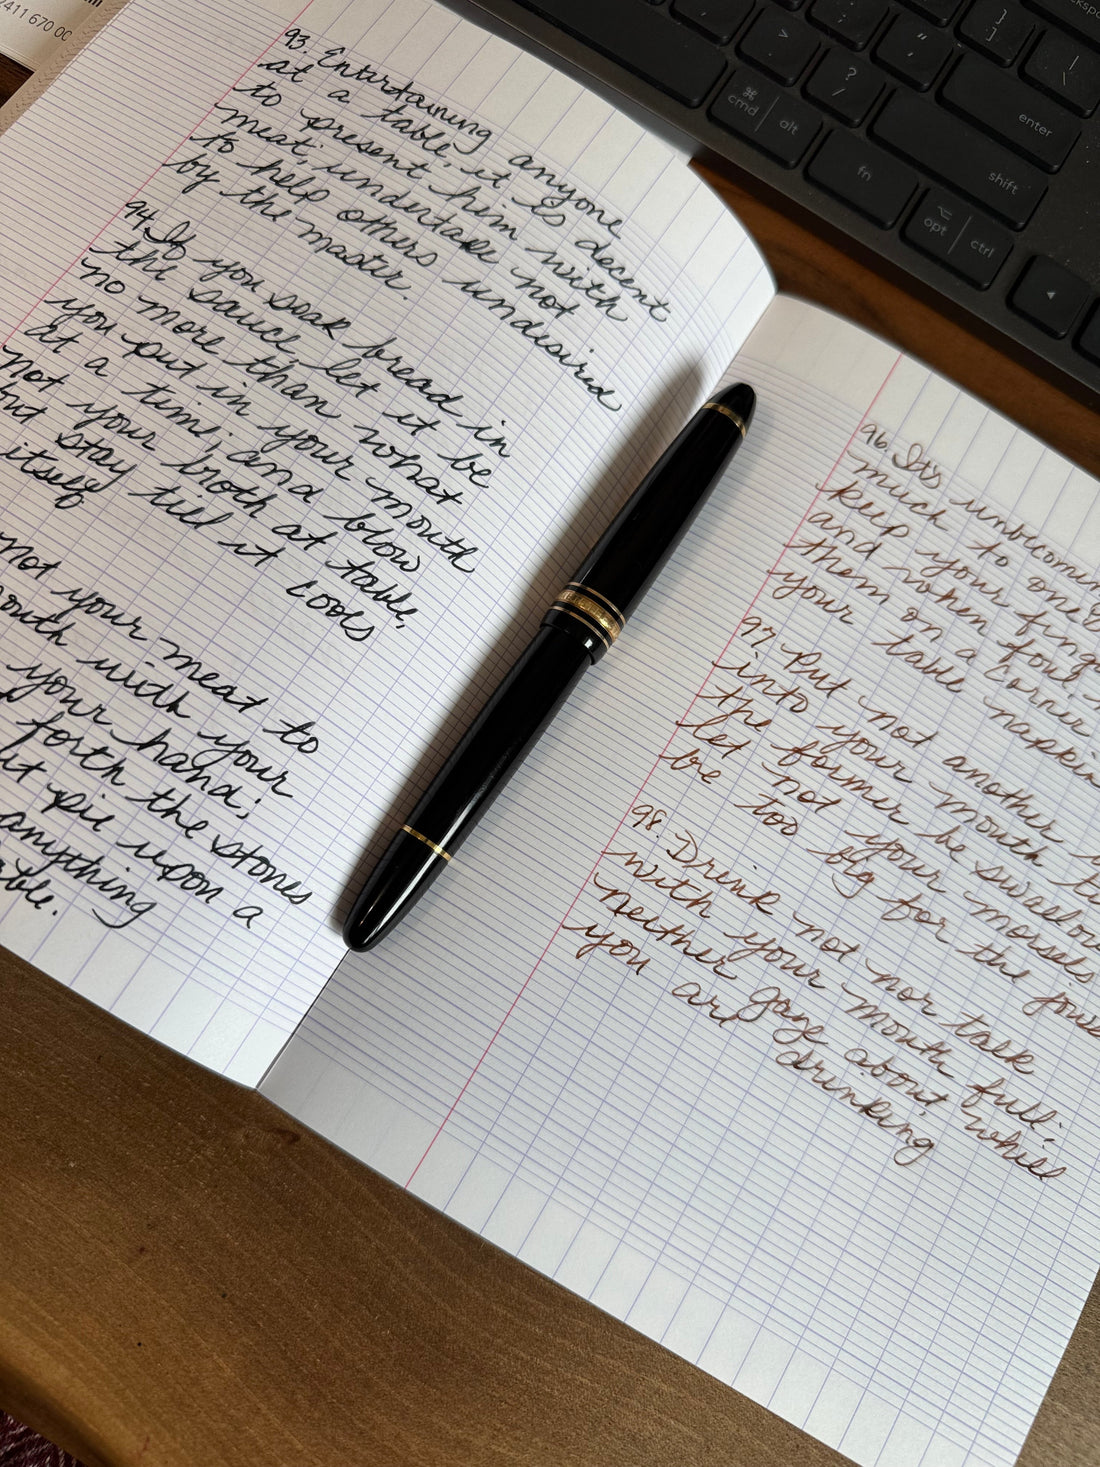 2411 670 00
93. Entertaining anyone
at a table, it is decent
to present him with
meat; undertake not
to help others undesired
by the master.
94. If you soak bread in
the sauce, let it be
no more than what
you put in your mouth
at a time, and blow
not your broth at table,
but stay till it cools
itself
not your meat to
mouth with your
your hand;
forth the stones
pie upon a
anything
96. It's
much to
keep your
and when foul,
them on a corner
your table
97. Put not another
into your mouth
the former be
let not your morsels
be too big for the
98. Drink not nor talk
with your mouth full;
neither gaze about while
you are drinking
cmd
alt
?
/
>
.
:
;
"
'
]
[
|
\
enter
shift
fn
opt
ctrl